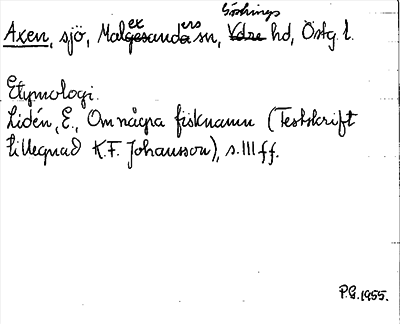 Göstrings
Axen, sjö, Malexanders sn, Ydre hd, Östg. l.
Etymologi.
Lidén, E., Om några fisknamn (Festskrift
tillegnad K.F. Johansson), s. 111 ff.
P.G. 1955.